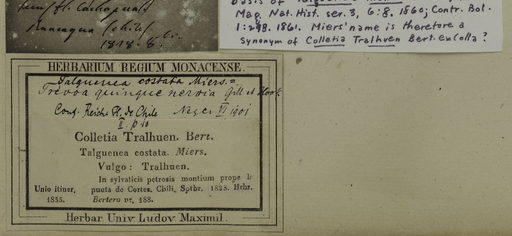 Rancagua (chile)
1828.
basis of
Mag. Nat. Hist. ser. 3, 6:8. 1860; Contr. Bot.
1:298. 1861. Miers' name is therefore a
synonym of Colletia Tralhuen Bert. ex Colla?
HERBARIUM REGIUM MONACENSE.
Talguenea costata Miers. =
Trevoa quinquenervia Gill et Hook.
Conf. Reiche Fl. de Chile
II. p 10
1901
Colletia Tralhuen. Bert.
Talguenea costata. Miers.
Vulgo: Tralhuen.
In sylvaticis petrosis montium prope
Unio itiner. pueta de Cortes. Chili. Sptbr. 1828. Hrbr.
1835. Bertero nr. 188.
Herbar. Univ. Ludov. Maximil.